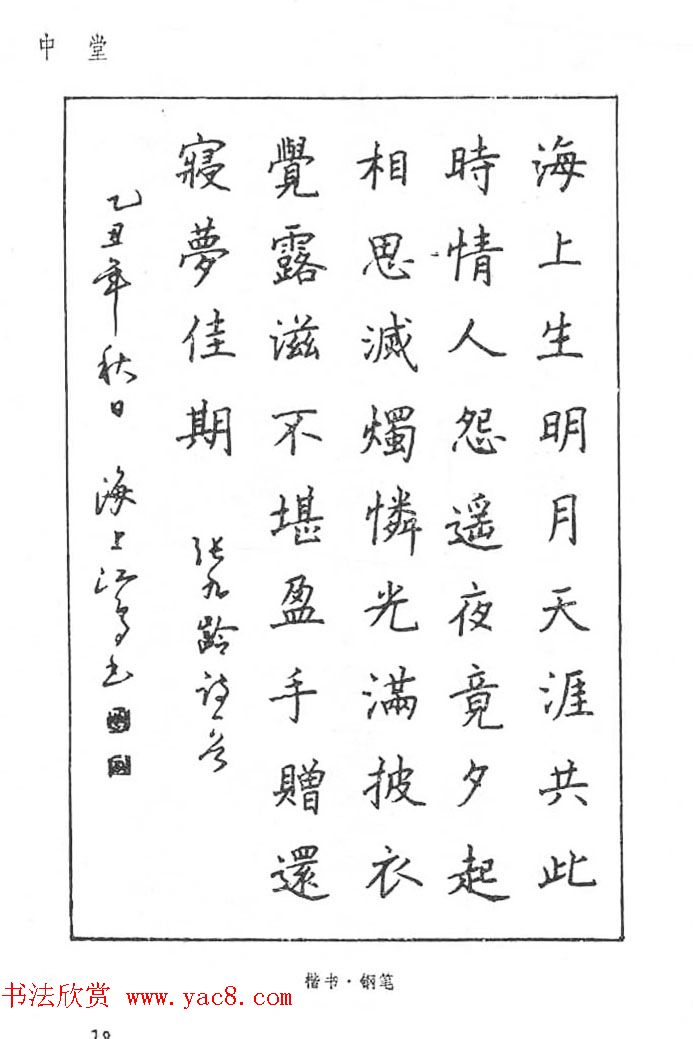 中堂
海上生明月天涯共此
時情人怨遥夜竟夕起
相思滅燭憐光滿披衣
覺露滋不堪盈手贈還
寢夢佳期
張九齡詩一首
乙丑年秋日 海上江鸟书
楷书·钢笔
书法欣赏 www.yac8.com